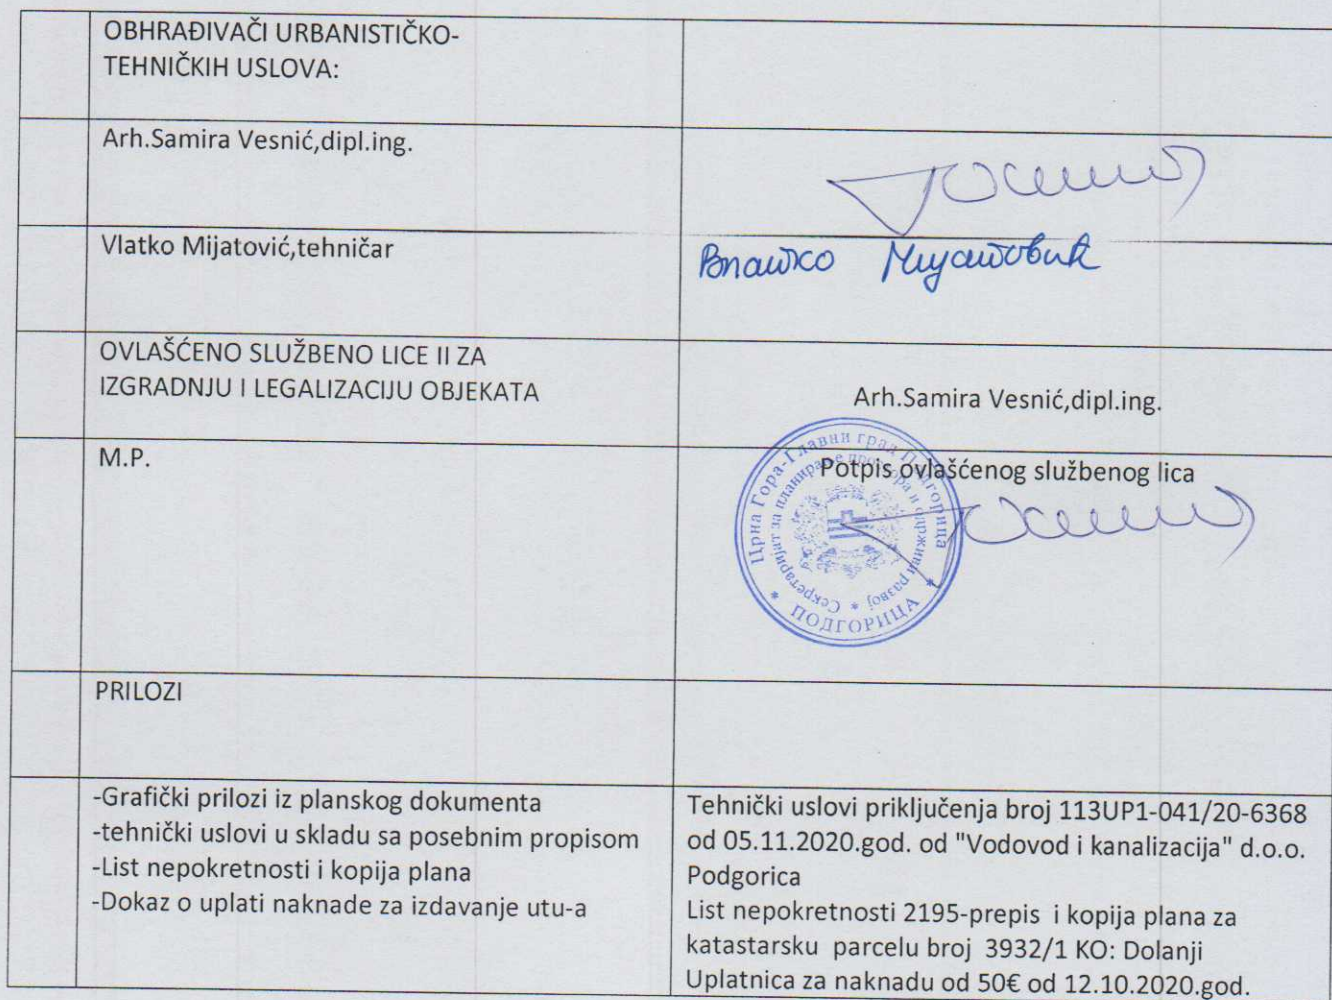 OBHRAĐIVAČI URBANISTIČKO-
TEHNIČKIH USLOVA:
Arh.Samira Vesnić,dipl.ing.
Vlatko Mijatović,tehničar
Влатко Мијатовић
OVLAŠĆENO SLUŽBENO LICE II ZA
IZGRADNJU I LEGALIZACIJU OBJEKATA
Arh.Samira Vesnić,dipl.ing.
M.P.
Potpis ovlašćenog službenog lica
Црна Гора-Главни град Подгорица
Секретаријат за планирање простора и одрживи развој
ПОДГОРИЦА
PRILOZI
-Grafički prilozi iz planskog dokumenta
-tehnički uslovi u skladu sa posebnim propisom
-List nepokretnosti i kopija plana
-Dokaz o uplati naknade za izdavanje utu-a
Tehnički uslovi priključenja broj 113UP1-041/20-6368
od 05.11.2020.god. od "Vodovod i kanalizacija" d.o.o.
Podgorica
List nepokretnosti 2195-prepis i kopija plana za
katastarsku parcelu broj 3932/1 KO: Dolanji
Uplatnica za naknadu od 50€ od 12.10.2020.god.